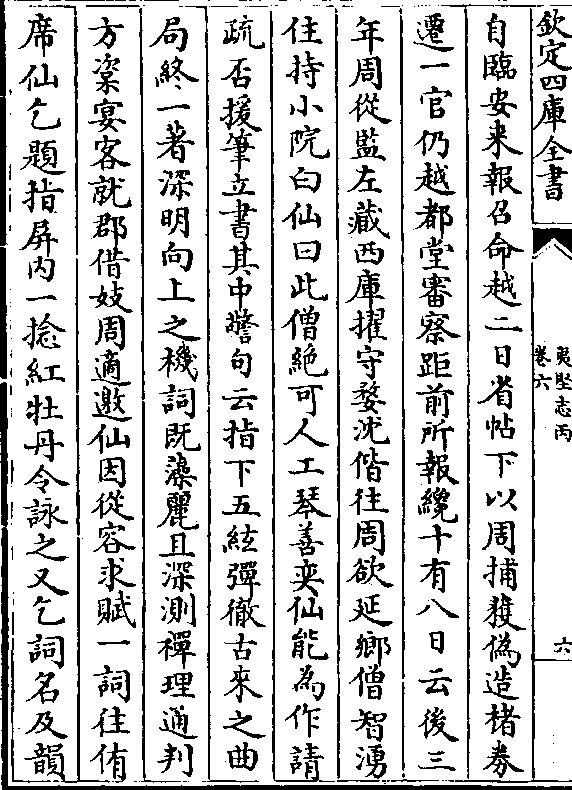 欽定四庫全書
夷堅志丙
卷六
六
自臨安来報召命越二日省帖下以周捕獲偽造楮券
遷一官仍越都堂審察距前所報纔十有八日云後三
年周從監左藏西庫擢守婺沈偕往周欲延鄉僧智湧
住持小院白仙曰此僧絶可人工琴善奕仙能為作請
疏否援筆立書其中警句云指下五絃彈徹古來之曲
局終一著深明向上之機詞既藻麗且深測禪理通判
方楶宴客就郡借妓周適邀仙因從容求賦一詞往侑
席仙乞題指屏内一捻紅牡丹令詠之又乞詞名及韻